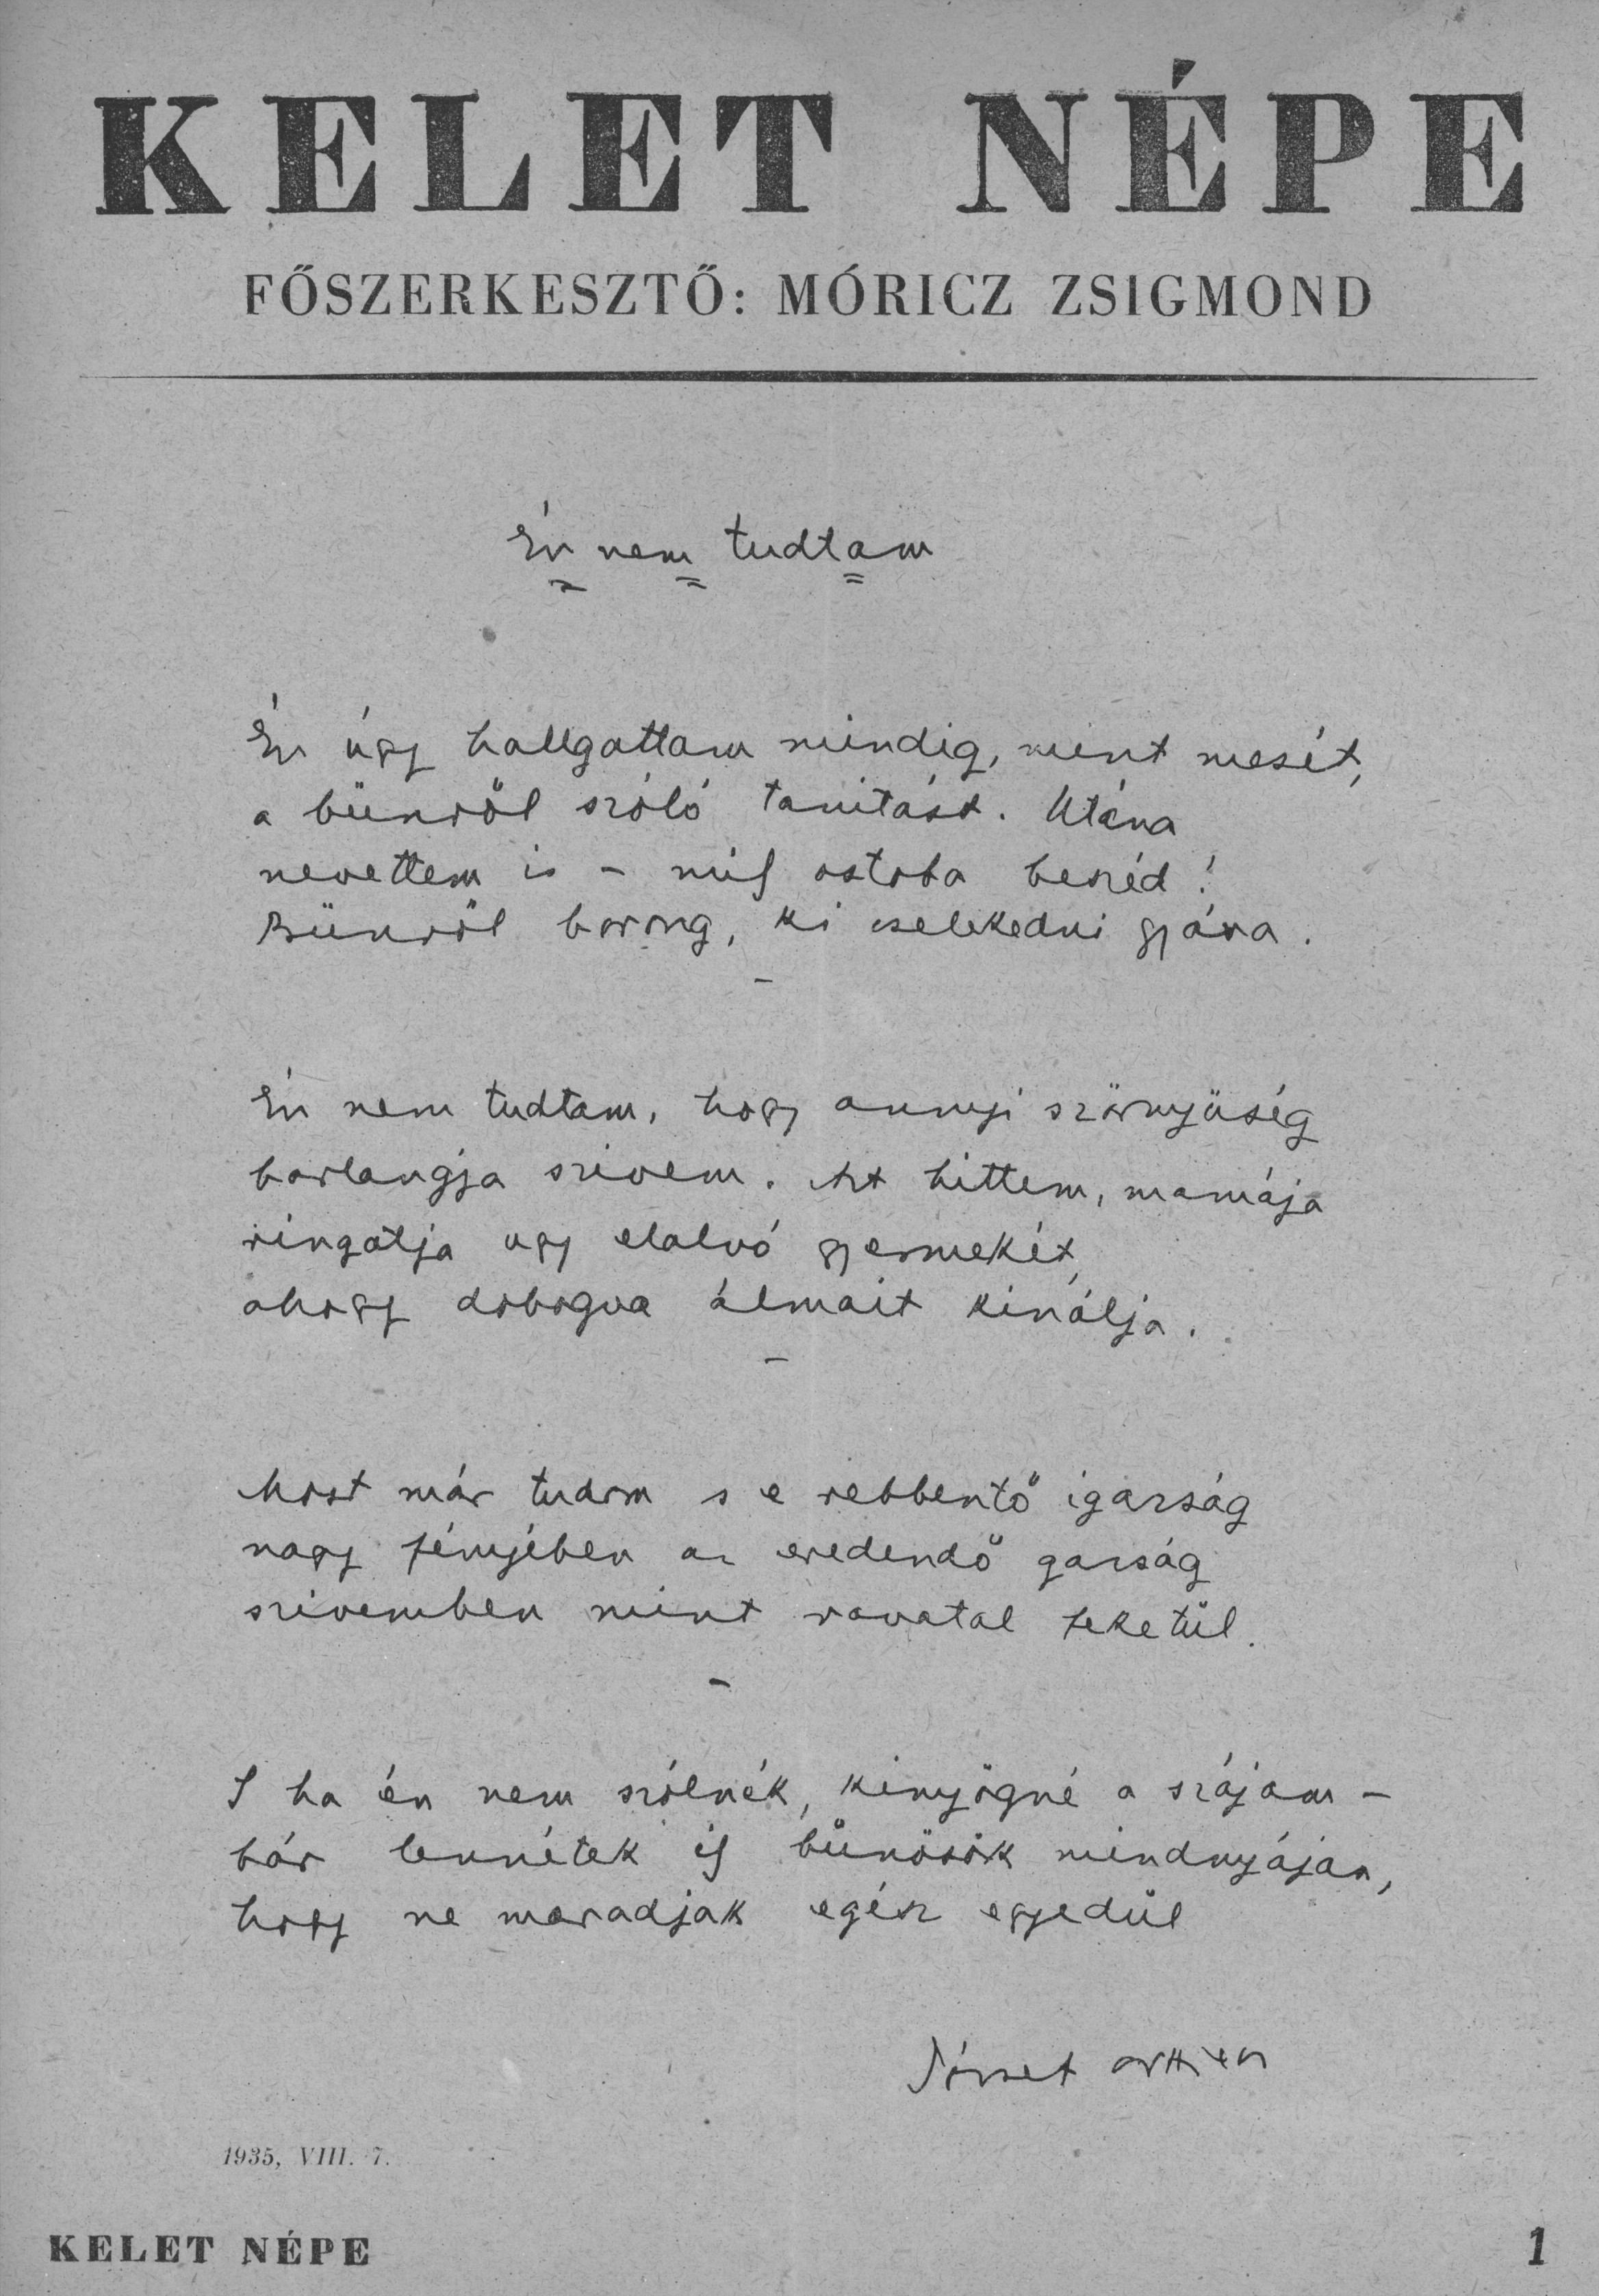 KELET NÉPE
FŐSZERKESZTŐ: MÓRICZ ZSIGMOND
Én nem tudtam
Én úgy hallgattam mindig, mint mesét,
a bünről szóló tanitást. Utána
nevettem is – mily ostoba beszéd!
Bünről borong, ki cselekedni gyáva.
–
Én nem tudtam, hogy annyi szörnyüség
barlangja szivem. Azt hittem, mamája
ringatja ugy elalvó gyermekét,
ahogy dobogva álmait kinálja.
–
Most már tudom s e rebbentő igazság
nagy fényében az eredendő gazság
szivemben mint ravatal feketül.
–
S ha én nem szólnék, kinyögné a szájam –
bár lennétek ily bünösök mindnyájan,
hogy ne maradjak egész egyedül
József Attila
1935, VIII. 7.
KELET NÉPE 1